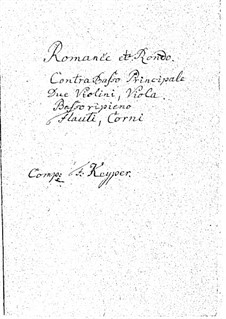 Romance et Rondo.
Contra Basso Principale
Due Violini, Viola.
Basso ripieno
Flauti, Corni
Comp: F: Keyper.